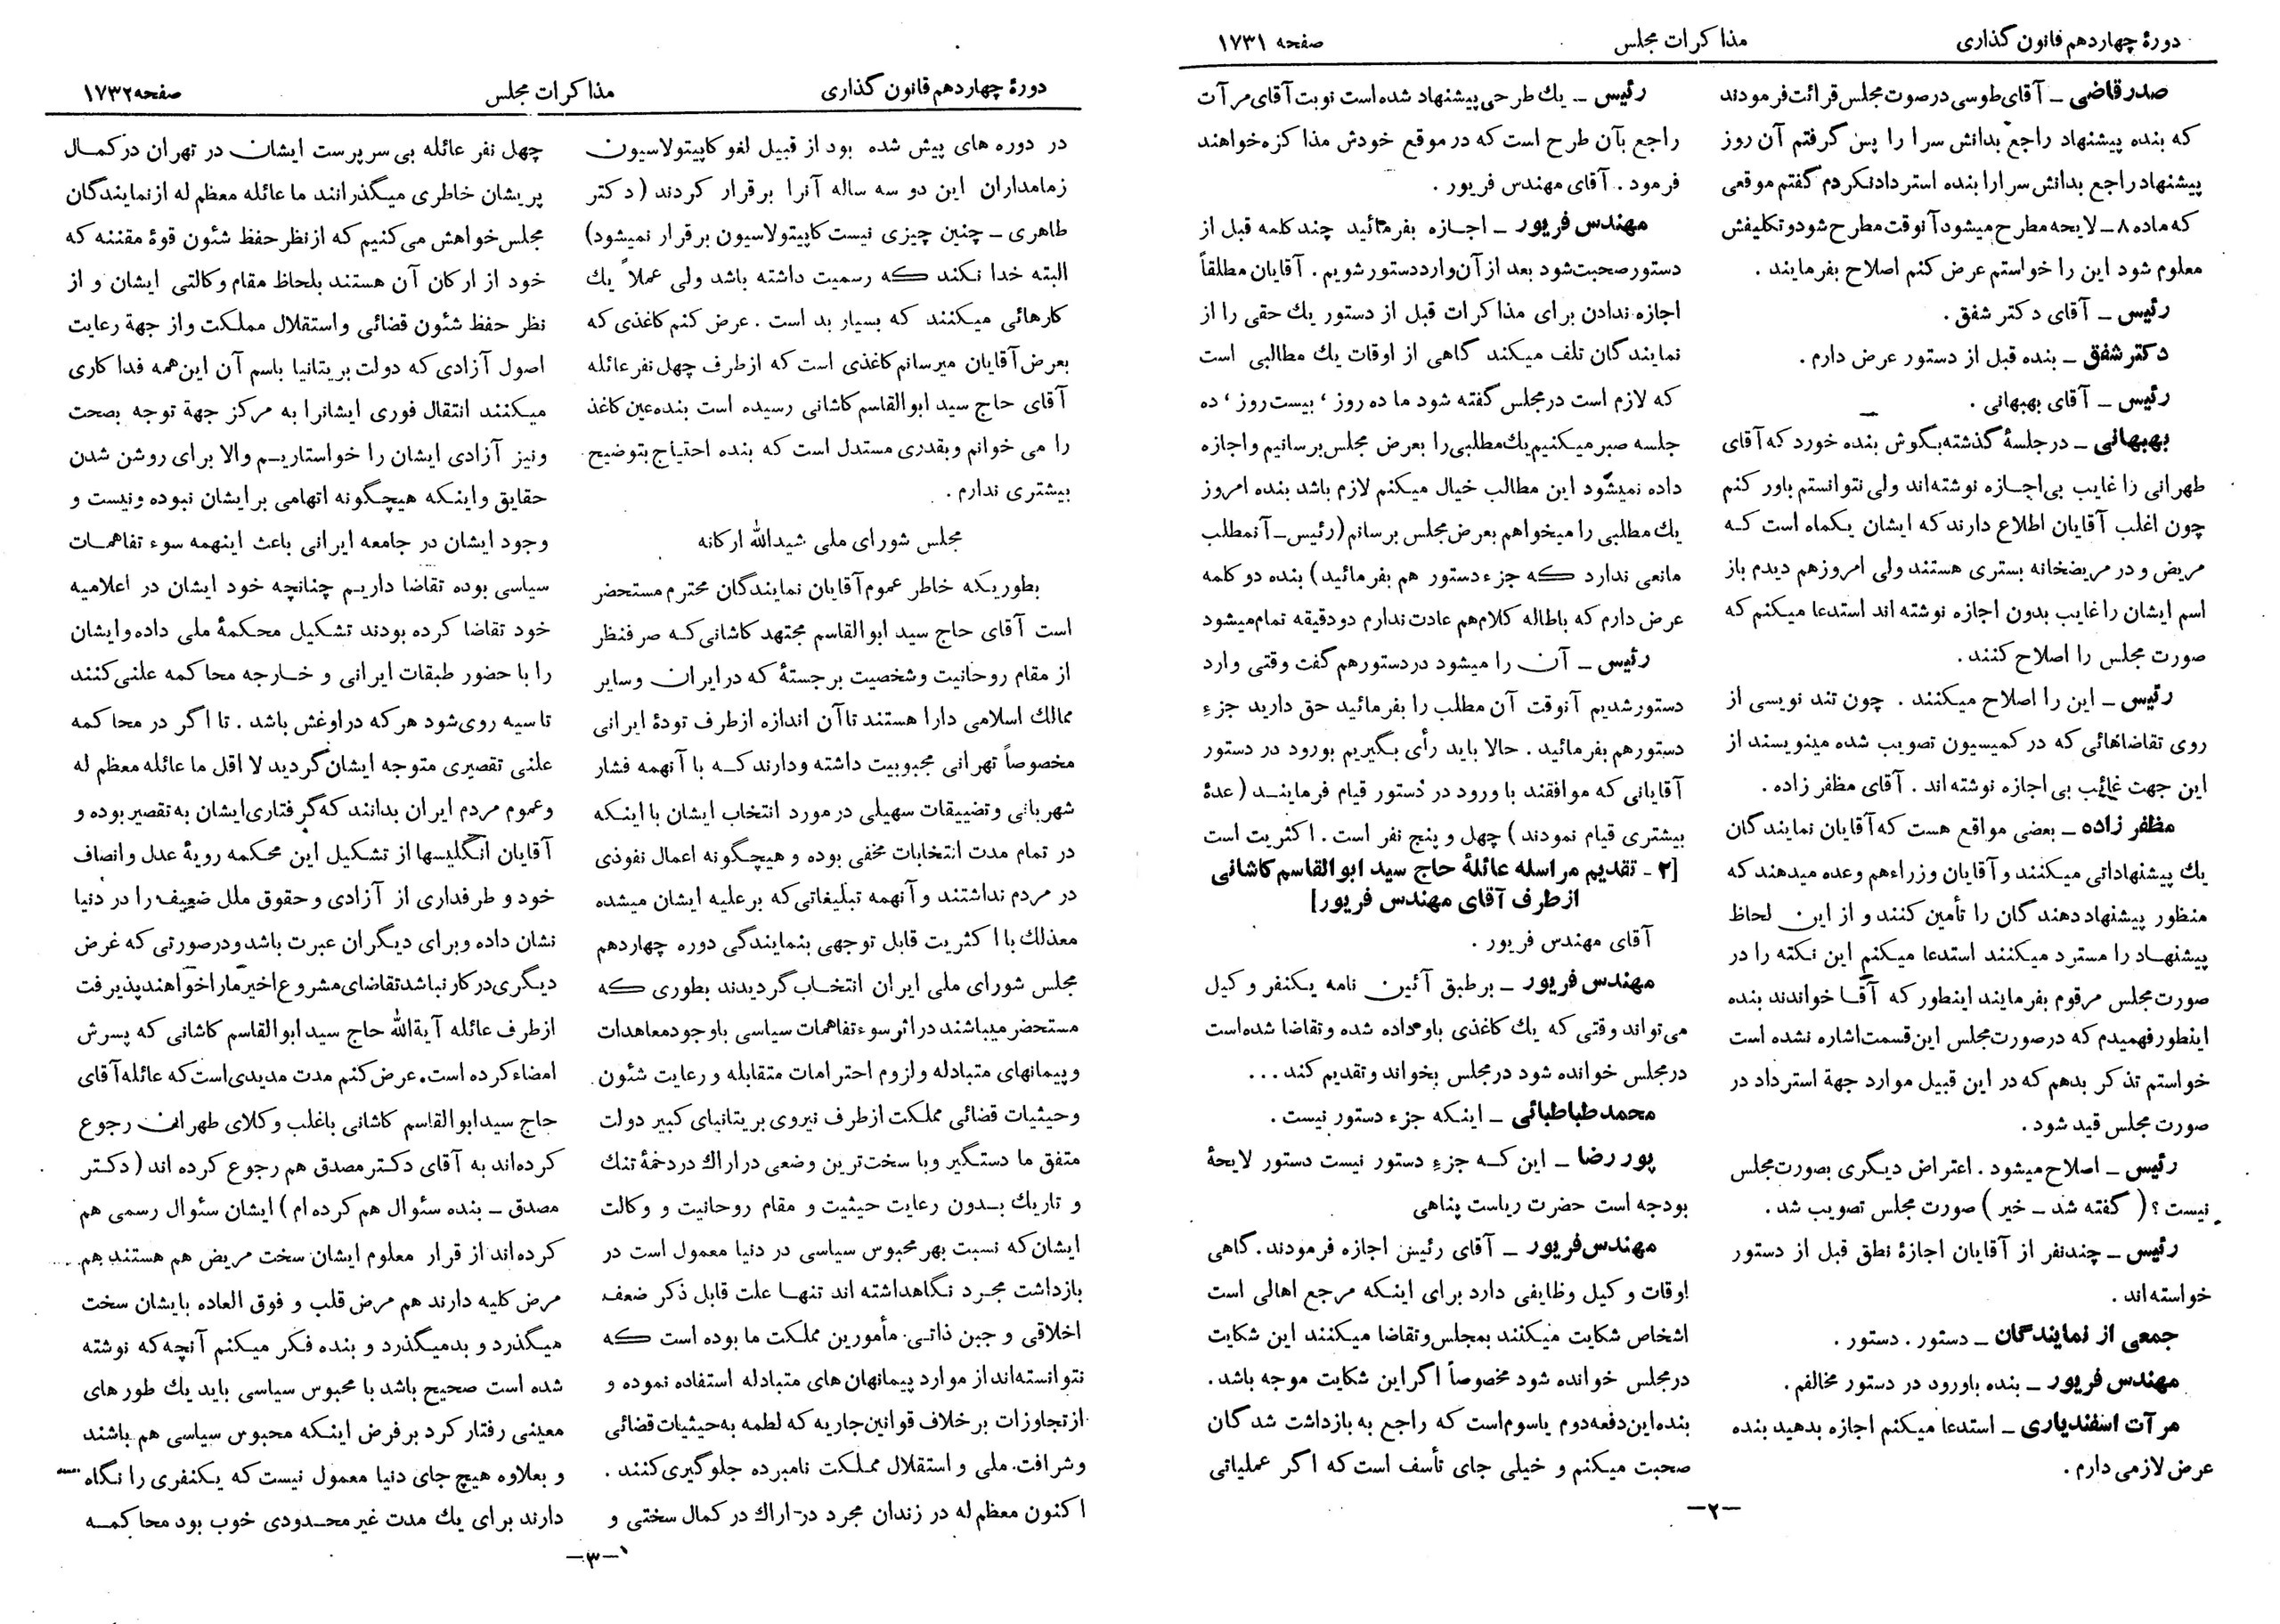 دورهٔ چهاردهم قانون گذاری
مذاکرات مجلس
صفحه ۱۷۳۱
صدرقاضی ـ آقای طوسی در صوت مجلس قرائت فرمودند
که بنده پیشنهاد راجع بدانش سرا را پس گرفتم آن روز
پیشنهاد راجع بدانش سرا را بنده استرداد نکردم گفتم موقعی
که ماده ۸ ـ لایحه مطرح میشود آنوقت مطرح شود و تکلیفش
معلوم شود این را خواستم عرض کنم اصلاح بفرمایند .
رئیس ـ آقای دکتر شفق .
دکتر شفق ـ بنده قبل از دستور عرض دارم .
رئیس ـ آقای بهبهانی .
بهبهانی ـ در جلسهٔ گذشته بگوش بنده خورد که آقای
طهرانی را غایب بی اجازه نوشته‌اند ولی نتوانستم باور کنم
چون اغلب آقایان اطلاع دارند که ایشان یکماه است که
مریض و در مریضخانه بستری هستند ولی امروز هم دیدم باز
اسم ایشان را غایب بدون اجازه نوشته اند استدعا میکنم که
صورت مجلس را اصلاح کنند .
رئیس ـ این را اصلاح میکنند . چون تند نویسی از
روی تقاضاهائی که در کمیسیون تصویب شده مینویسند از
این جهت غائب بی اجازه نوشته اند . آقای مظفر زاده .
مظفر زاده ـ بعضی مواقع هست که آقایان نمایندگان
یك پیشنهاداتی میکنند و آقایان وزراء هم وعده میدهند که
منظور پیشنهاد دهندگان را تأمین کنند و از این لحاظ
پیشنهاد را مسترد میکنند استدعا میکنم این نکته را در
صورت مجلس مرقوم بفرمایند اینطور که آقا خواندند بنده
اینطور فهمیدم که در صورت مجلس این قسمت اشاره نشده است
خواستم تذکر بدهم که در این قبیل موارد جهة استرداد در
صورت مجلس قید شود .
رئیس ـ اصلاح میشود . اعتراض دیگری بصورت مجلس
نیست ؟ ( گفته شد ـ خیر ) صورت مجلس تصویب شد .
رئیس ـ چند نفر از آقایان اجازهٔ نطق قبل از دستور
خواسته اند .
جمعی از نمایندگان ـ دستور . دستور .
مهندس فریور ـ بنده باورود در دستور مخالفم .
مرآت اسفندیاری ـ استدعا میکنم اجازه بدهید بنده
عرض لازمی دارم .
رئیس ـ یك طرحی پیشنهاد شده است نوبت آقای مرآت
راجع بآن طرح است که در موقع خودش مذاکره خواهند
فرمود . آقای مهندس فریور .
مهندس فریور ـ اجازه بفرمائید چند کلمه قبل از
دستور صحبت شود بعد از آن وارد دستور شویم . آقایان مطلقاً
اجازه ندادن برای مذاکرات قبل از دستور یك حقی را از
نمایندگان تلف میکند گاهی از اوقات یك مطالبی است
که لازم است در مجلس گفته شود ما ده روز ، بیست روز ، ده
جلسه صبر میکنیم یك مطلبی را بعرض مجلس برسانیم و اجازه
داده نمیشود این مطالب خیال میکنم لازم باشد بنده امروز
یك مطلبی را میخواهم بعرض مجلس برسانم (رئیس ـ آنمطلب
مانعی ندارد که جزء دستور هم بفرمائید) بنده دو کلمه
عرض دارم که باطاله کلام هم عادت ندارم دو دقیقه تمام میشود
رئیس ـ آن را میشود در دستور هم گفت وقتی وارد
دستور شدیم آنوقت آن مطلب را بفرمائید حق دارید جزءِ
دستور هم بفرمائید . حالا باید رأی بگیریم بورود در دستور
آقایانی که موافقند با ورود در دُستور قیام فرمایند ( عدهٔ
بیشتری قیام نمودند ) چهل و پنج نفر است . اکثریت است
[۲ ـ تقدیم مراسله عائلهٔ حاج سید ابوالقاسم کاشانی
از طرف آقای مهندس فریور]
آقای مهندس فریور .
مهندس فریور ـ برطبق آئین نامه یکنفر وکیل
می‌تواند وقتی که یك کاغذی باو داده شده و تقاضا شده است
در مجلس خوانده شود در مجلس بخواند و تقدیم کند ...
محمد طباطبائی ـ اینکه جزء دستور نیست .
پور رضا ـ این که جزءِ دستور نیست دستور لایحهٔ
بودجه است حضرت ریاست پناهی
مهندس فریور ـ آقای رئیس اجازه فرمودند . گاهی
اوقات وکیل وظایفی دارد برای اینکه مرجع اهالی است
اشخاص شکایت میکنند بمجلس و تقاضا میکنند این شکایت
در مجلس خوانده شود مخصوصاً اگر این شکایت موجه باشد .
بنده این دفعه دوم یا سوم است که راجع به بازداشت شدگان
صحبت میکنم و خیلی جای تأسف است که اگر عملیاتی
ـ۲ـ
دورهٔ چهاردهم قانون گذاری
مذاکرات مجلس
صفحه ۱۷۳۲
در دوره های پیش شده بود از قبیل لغو کاپیتولاسیون
زمامداران این دو سه ساله آنرا برقرار کردند ( دکتر
طاهری ـ چنین چیزی نیست کاپیتولاسیون برقرار نمیشود)
البته خدا نکند که رسمیت داشته باشد ولی عملاً یك
کارهائی میکنند که بسیار بد است . عرض کنم کاغذی که
بعرض آقایان میرسانم کاغذی است که از طرف چهل نفر عائله
آقای حاج سید ابوالقاسم کاشانی رسیده است بنده عین کاغذ
را می خوانم و بقدری مستدل است که بنده احتیاج بتوضیح
بیشتری ندارم .
مجلس شورای ملی شیدالله ارکانه
بطوریکه خاطر عموم آقایان نمایندگان محترم مستحضر
است آقای حاج سید ابوالقاسم مجتهد کاشانی که صرفنظر
از مقام روحانیت و شخصیت برجستهٔ که در ایران و سایر
ممالك اسلامی دارا هستند تا آن اندازه از طرف تودهٔ ایرانی
مخصوصاً تهرانی محبوبیت داشته و دارند که با آنهمه فشار
شهربانی و تضییقات سهیلی در مورد انتخاب ایشان با اینکه
در تمام مدت انتخابات مخفی بوده و هیچگونه اعمال نفوذی
در مردم نداشتند و آنهمه تبلیغاتی که بر علیه ایشان میشده
معذلك با اکثریت قابل توجهی بنمایندگی دوره چهاردهم
مجلس شورای ملی ایران انتخاب گردیدند بطوری که
مستحضر میباشند در اثر سوء تفاهمات سیاسی باوجود معاهدات
و پیمانهای متبادله و لزوم احترامات متقابله و رعایت شئون
و حیثیات قضائی مملکت از طرف نیروی بریتانیای کبیر دولت
متفق ما دستگیر و با سخت‌ترین وضعی در اراك در دخمهٔ تنك
و تاریك بدون رعایت حیثیت و مقام روحانیت و وکالت
ایشان که نسبت بهر محبوس سیاسی در دنیا معمول است در
بازداشت مجرد نگاهداشته اند تنها علت قابل ذکر ضعف
اخلاقی و جبن ذاتی مأمورین مملکت ما بوده است که
نتوانسته‌اند از موارد پیمانهان های متبادله استفاده نموده و
از تجاوزات برخلاف قوانین جاریه که لطمه به حیثیات قضائی
و شرافت ملی و استقلال مملکت نامبرده جلوگیری کنند .
اکنون معظم له در زندان مجرد در اراك در کمال سختی و
چهل نفر عائله بی سرپرست ایشان در تهران در کمال
پریشان خاطری میگذرانند ما عائله معظم له از نمایندگان
مجلس خواهش می‌کنیم که از نظر حفظ شئون قوهٔ مقننه که
خود از ارکان آن هستند بلحاظ مقام وکالتی ایشان و از
نظر حفظ شئون قضائی و استقلال مملکت و از جهة رعایت
اصول آزادی که دولت بریتانیا باسم آن این همه فداکاری
میکنند انتقال فوری ایشانرا به مرکز جهة توجه بصحت
و نیز آزادی ایشان را خواستاریم والا برای روشن شدن
حقایق و اینکه هیچگونه اتهامی بر ایشان نبوده و نیست و
وجود ایشان در جامعه ایرانی باعث اینهمه سوء تفاهمات
سیاسی بوده تقاضا داریم چنانچه خود ایشان در اعلامیه
خود تقاضا کرده بودند تشکیل محکمهٔ ملی داده و ایشان
را با حضور طبقات ایرانی و خارجه محاکمه علنی کنند
تا سیه روی شود هر که در او غش باشد . تا اگر در محاکمه
علنی تقصیری متوجه ایشان گردید لااقل ما عائله معظم له
و عموم مردم ایران بدانند که گرفتاری ایشان به تقصیر بوده و
آقایان انگلیسها از تشکیل این محکمه رویهٔ عدل و انصاف
خود و طرفداری از آزادی و حقوق ملل ضعیف را در دنیا
نشان داده و برای دیگران عبرت باشد و در صورتی که غرض
دیگری در کار نباشد تقاضای مشروع اخیر ما را خواهند پذیرفت
از طرف عائله آیةالله حاج سید ابوالقاسم کاشانی که پسرش
امضاء کرده است . عرض کنم مدت مدیدی است که عائله آقای
حاج سید ابوالقاسم کاشانی باغلب وکلای طهران رجوع
کرده‌اند به آقای دکتر مصدق هم رجوع کرده اند ( دکتر
مصدق ـ بنده سئوال هم کرده ام ) ایشان سئوال رسمی هم
کرده‌اند از قرار معلوم ایشان سخت مریض هم هستند هم
مرض کلیه دارند هم مرض قلب و فوق العاده بایشان سخت
میگذرد و بد میگذرد و بنده فکر میکنم آنچه که نوشته
شده است صحیح باشد با محبوس سیاسی باید یك طور های
معینی رفتار کرد بر فرض اینکه محبوس سیاسی هم باشند
و بعلاوه هیچ جای دنیا معمول نیست که یکنفری را نگاه
دارند برای یك مدت غیر محدودی خوب بود محاکمه
ـ۳ـ